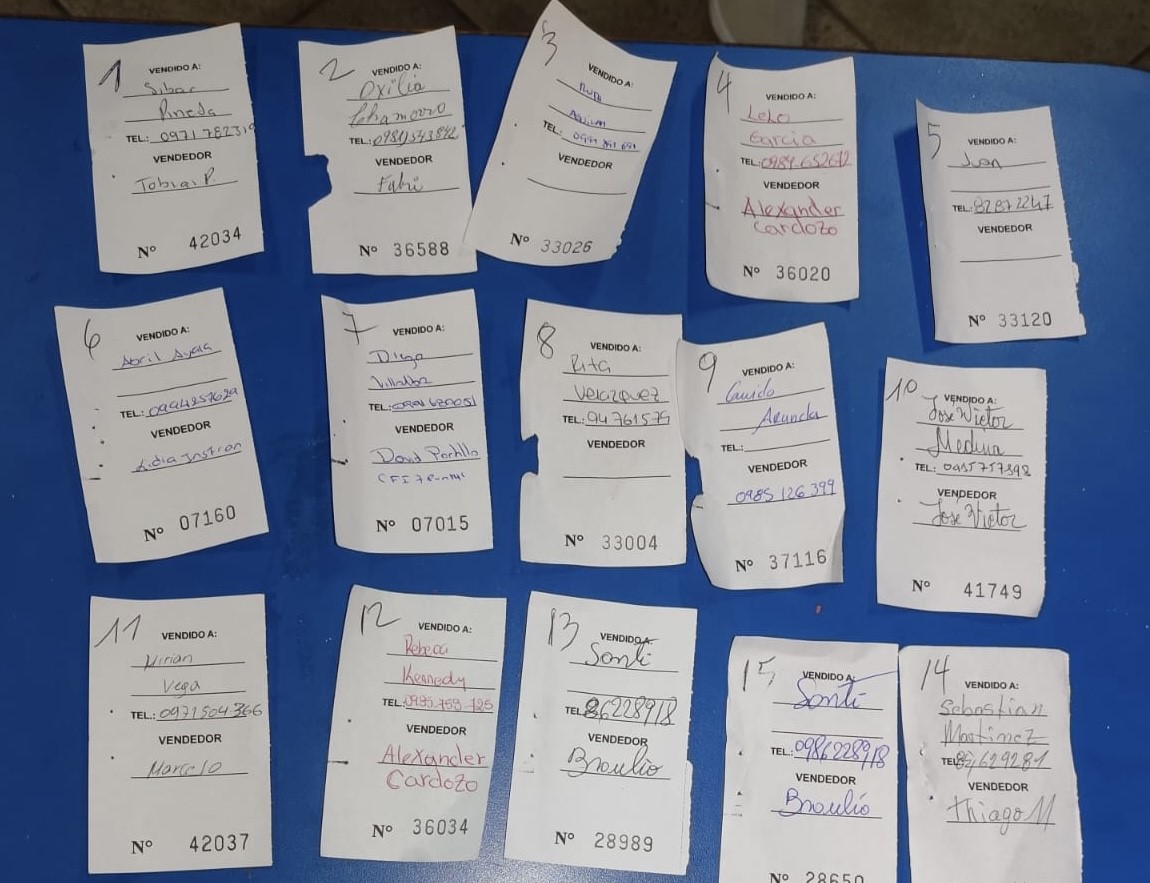 1
VENDIDO A:
Sibar
Pineda
TEL.:
VENDEDOR
Tobias P.
Nº 42034
2
VENDIDO A:
Oxilia
Chamorro
TEL.: 0981543842
VENDEDOR
Fabri
Nº 36588
3
VENDIDO A:
TEL.:
VENDEDOR
Nº 33026
4
VENDIDO A:
Lelo
Garcia
TEL.:
VENDEDOR
Alexander
Cardozo
Nº 36020
5
VENDIDO A:
Jon
TEL.: 82872247
VENDEDOR
Nº 33120
6
VENDIDO A:
Abril Ayala
TEL.:
VENDEDOR
Lidia
Nº 07160
7
VENDIDO A:
Diego
Villalba
TEL.:
VENDEDOR
David Portillo
Nº 07015
8
VENDIDO A:
Rita
Velazquez
TEL.: 94 761575
VENDEDOR
Nº 33004
9
VENDIDO A:
Guido
Aranda
TEL.:
VENDEDOR
0985 126 399
Nº 37116
10
VENDIDO A:
Jose Victor
Medina
TEL.:
VENDEDOR
Jose Victor
Nº 41749
11
VENDIDO A:
Mirian
Vega
TEL.: 0971504366
VENDEDOR
Marcelo
Nº 42037
12
VENDIDO A:
Rebeca
Kennedy
TEL.: 0985 759 725
VENDEDOR
Alexander
Cardozo
Nº 36034
13
VENDIDO A:
Santi
TEL. 86228918
VENDEDOR
Braulio
Nº 28989
15
VENDIDO A:
Santi
TEL.: 0986228918
VENDEDOR
Braulio
Nº 28650
14
VENDIDO A:
Sebastian
Martinez
TEL.
VENDEDOR
Thiago M